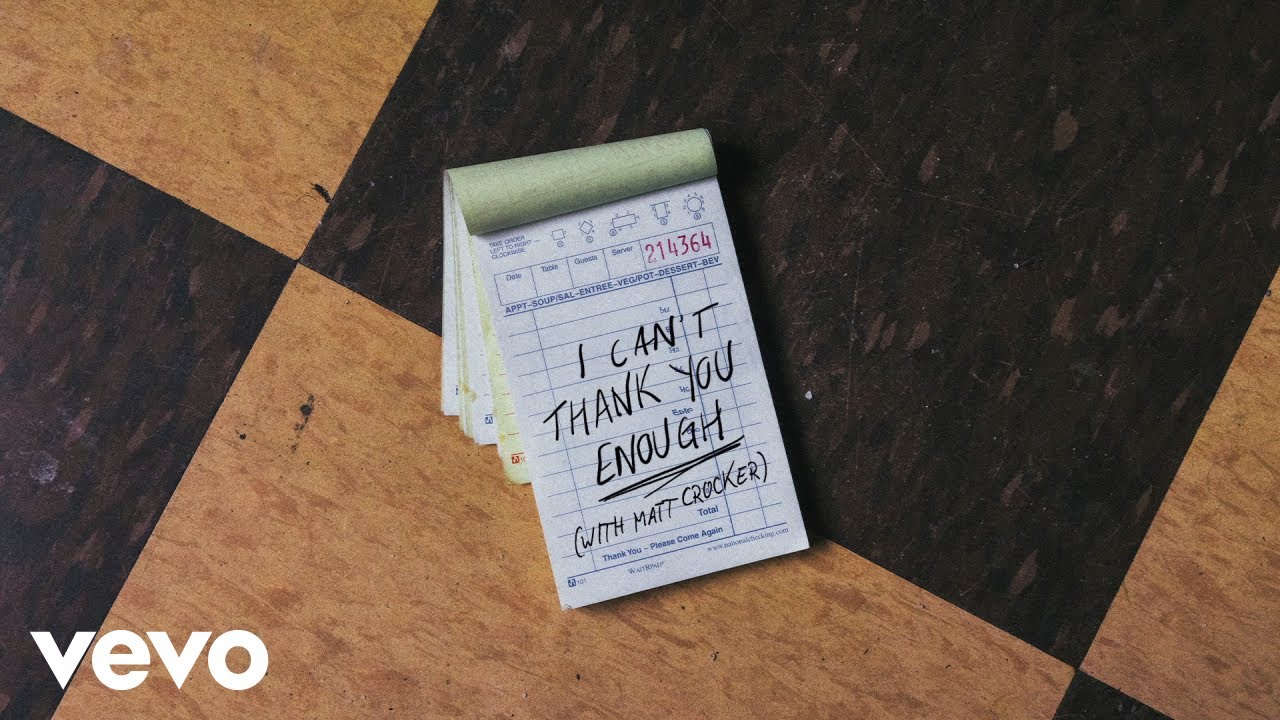 TAKE ORDER
LEFT TO RIGHT —
CLOCKWISE
Date Table Guests Server 214364
APPT–SOUP/SAL–ENTREE–VEG/POT–DESSERT–BEV
I CAN'T
THANK YOU
ENOUGH
(WITH MATT CROCKER)
Total
Thank You – Please Come Again
www.nationalchecking.com
WAITRPAD®
101
vevo